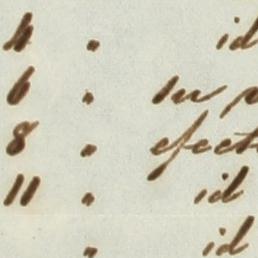 4 " id
6 "
8 " efect
11 " id
" id